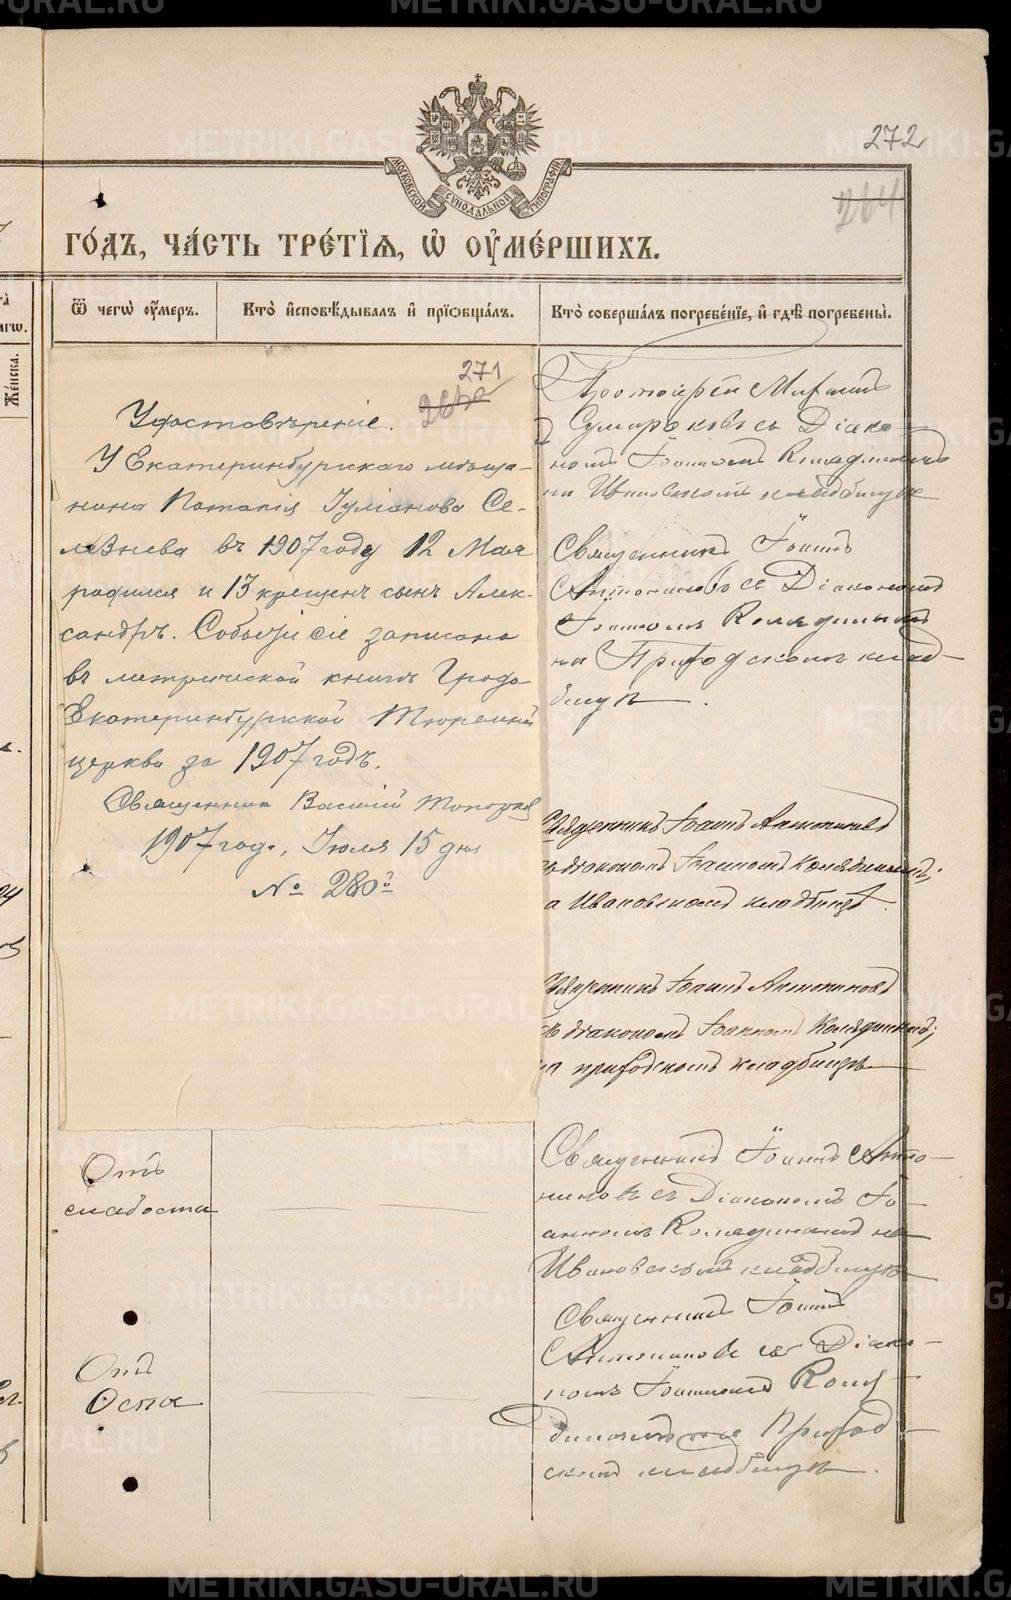 METRIKI.GASO-URAL.RU
272
264
МОСКОВСКОЙ СѴНОДАЛЬНОЙ ТИПОГРАФІИ
ГО́ДЪ, ЧА́СТЬ ТРЕ́ТІЯ, Ѽ ОУ҆МЕ́РШИХЪ.
Ѿ чегѡ̀ оу҆́меръ.
Кто̀ и҆сповѣ́дывалъ и҆ прїѡбща́лъ.
Кто̀ соверша́лъ погребе́нїе, и҆ гдѣ̀ погребены̀.
Же́нска.
271
Удостовѣреніе.
У Екатеринбургскаго мѣща-
нина Потапія Іуліанова Се-
лезнева въ 1907 году 12 Мая
родился и 13 крещенъ сынъ Алек-
сандръ. Событіе сіе записано
въ метрической книгѣ Градо-
Екатеринбургской Тюремной
церкви за 1907 годъ.
Священникъ Василій Топорков
1907 год., Іюля 15 дня
№ 280й
Протоіерей Михаилъ
Сумароковъ съ Діако-
номъ Іоанномъ Колядинымъ
на Ивановскомъ кладбищѣ
Священникъ Іоаннъ
Антониновъ съ Діакономъ
Іоанномъ Колядинымъ
на Приходскомъ клад-
бищѣ.
Священникъ Іоаннъ Антониновъ
съ діакономъ Іоанномъ Колядинымъ;
на Ивановскомъ кладбищѣ.
Священникъ Іоаннъ Антониновъ
съ діакономъ Іоанномъ Колядинымъ;
на приходскомъ кладбищѣ
Отъ
слабости
Священникъ Іоаннъ Анто-
ниновъ съ Діакономъ Іо-
анномъ Колядинымъ на
Ивановскомъ кладбищѣ
Отъ
Оспы
Священникъ Іоаннъ
Антониновъ съ Діако-
номъ Іоанномъ Коля-
динымъ на Приход-
скомъ кладбищѣ.